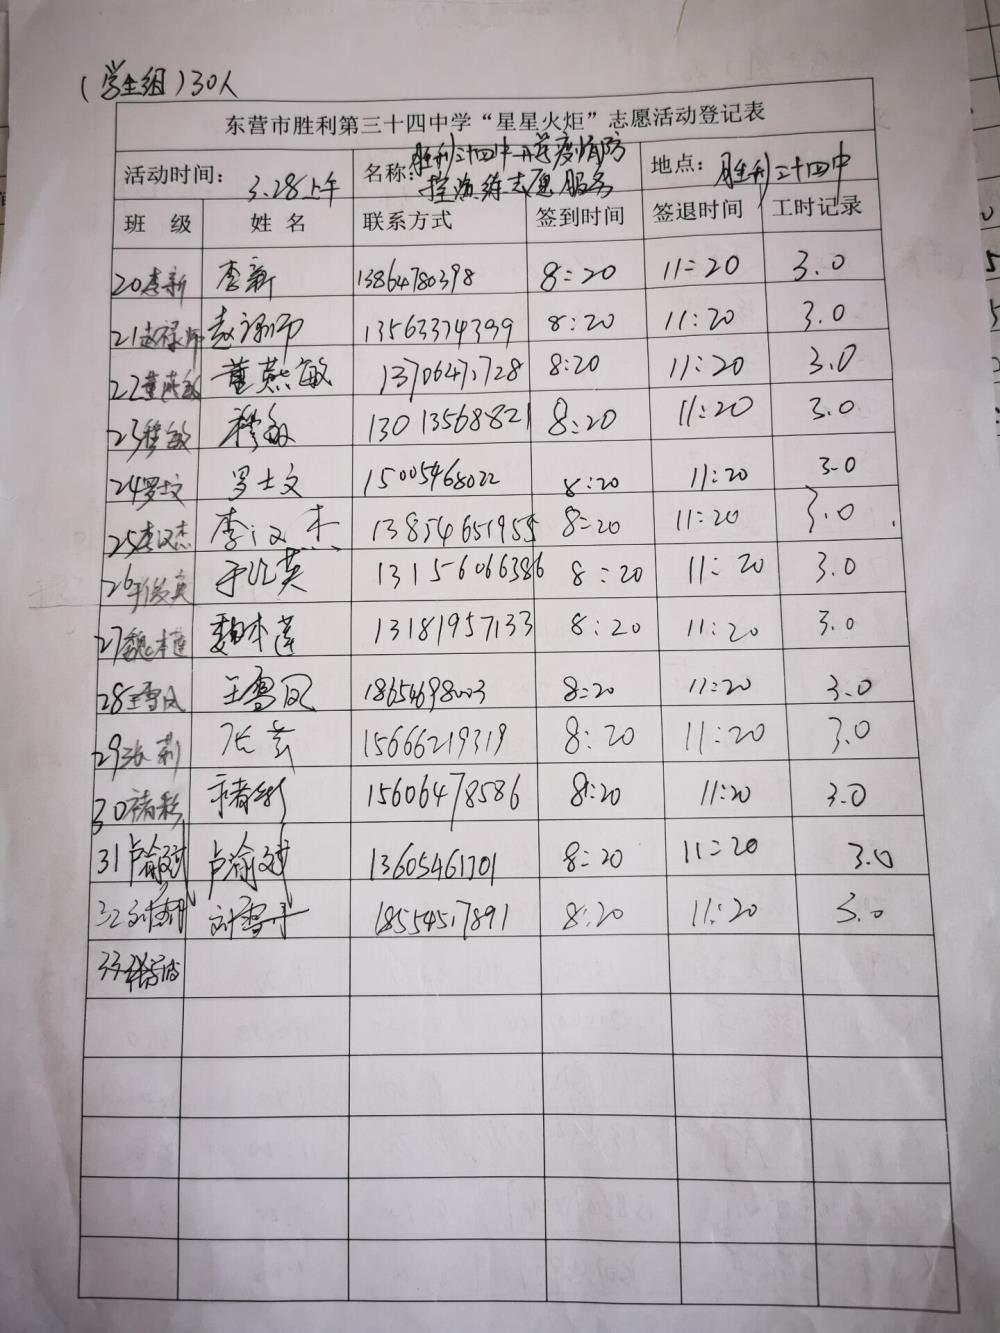 （学生组）30人
东营市胜利第三十四中学“星星火炬”志愿活动登记表
活动时间： 3.28上午 名称：胜利三十四中开学疫情防控演练志愿服务 地点：胜利三十四中
班 级 姓 名 联系方式 签到时间 签退时间 工时记录
20李新 李新 13864780398 8:20 11:20 3.0
21赵禄师 赵禄师 13563374399 8:20 11:20 3.0
22董燕敏 董燕敏 13706471728 8:20 11:20 3.0
23穆敏 穆敏 13013568821 8:20 11:20 3.0
24罗士文 罗士文 15005468022 8:20 11:20 3.0
25李汉杰 李汉杰 13854651955 8:20 11:20 3.0
26于俊英 于俊英 13156066386 8:20 11:20 3.0
27魏本莲 魏本莲 13181957133 8:20 11:20 3.0
28王雪凤 王雪凤 18654698003 8:20 11:20 3.0
29张莉 张莉 15666219319 8:20 11:20 3.0
30褚彩 褚彩 15606478586 8:20 11:20 3.0
31卢渝斌 卢渝斌 13605461701 8:20 11:20 3.0
32刘雪丹 刘雪丹 18554517891 8:20 11:20 3.0
33